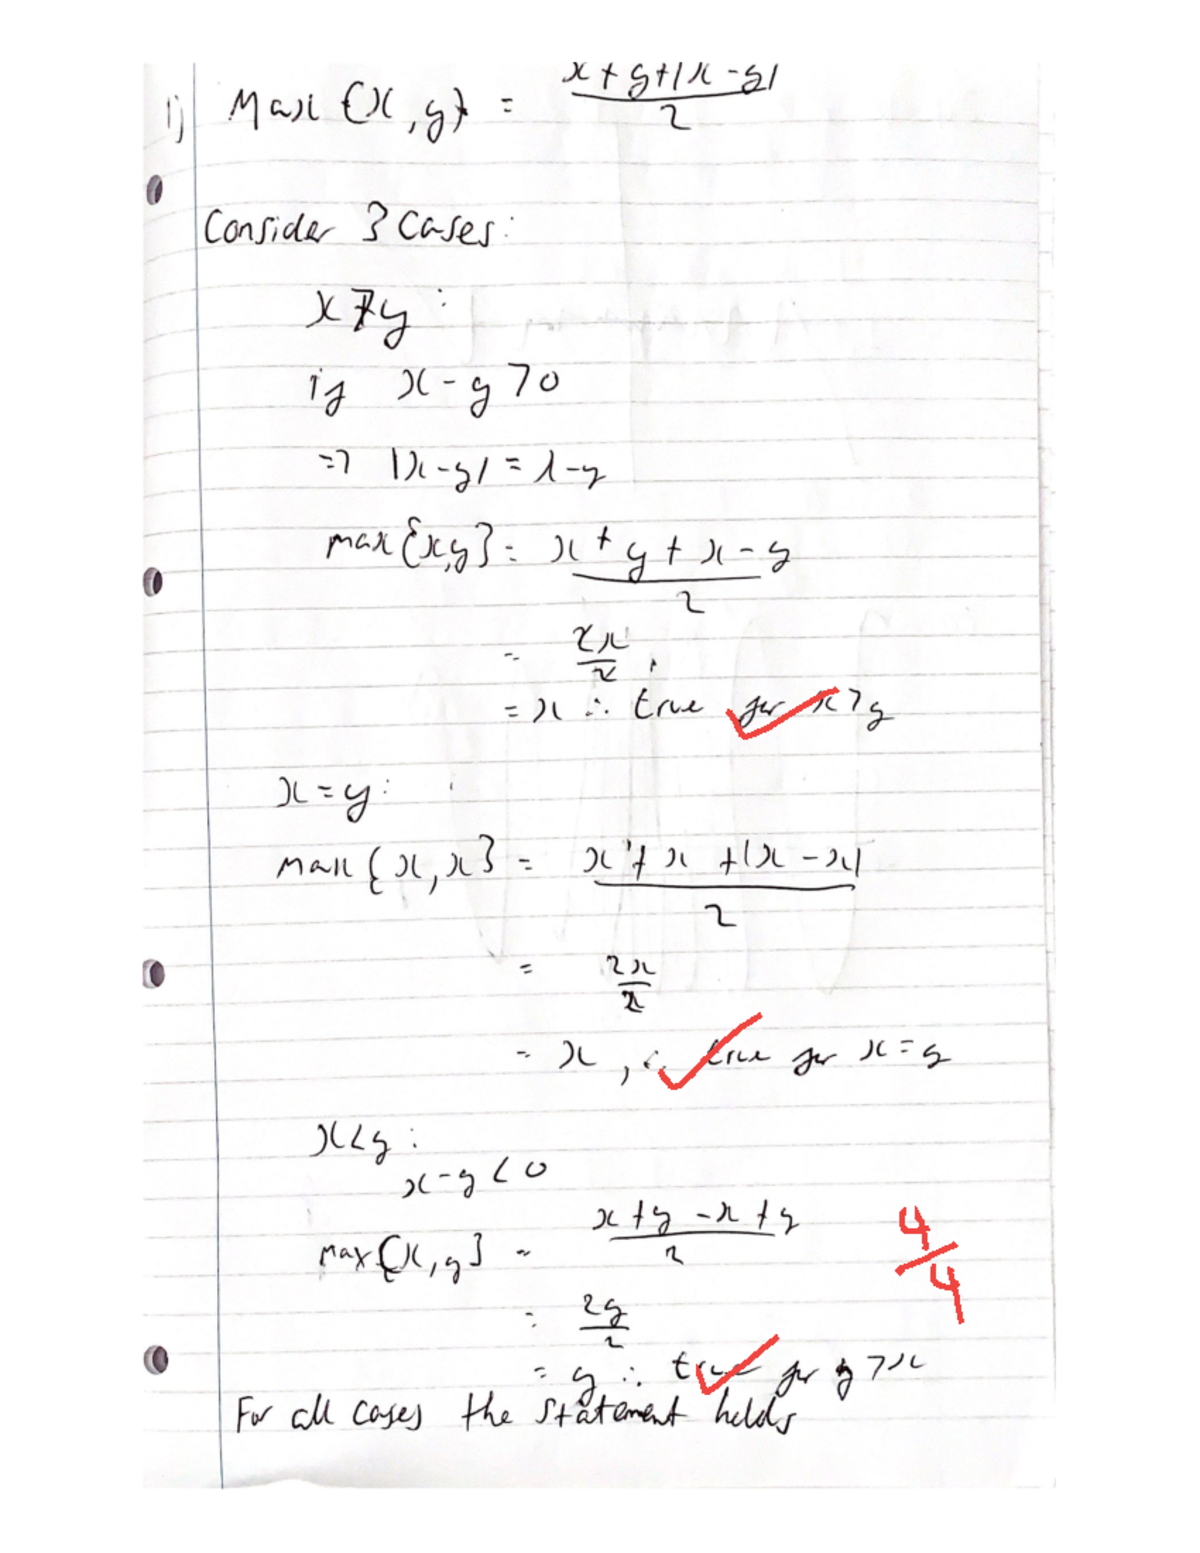 1) Max {x, y} = x + y + |x - y| / 2
Consider 3 Cases:
x > y :
if x - y > 0
=> |x - y| = x - y
max {x, y} = x + y + x - y / 2
= 2x / 2
= x ∴ true for x > y
x = y :
Max {x, x} = x + x + |x - x| / 2
= 2x / 2
= x , ∴ true for x = y
x < y :
x - y < 0
max {x, y} = x + y - x + y / 2
4/4
= 2y / 2
= y ∴ true for y > x
For all cases the statement holds